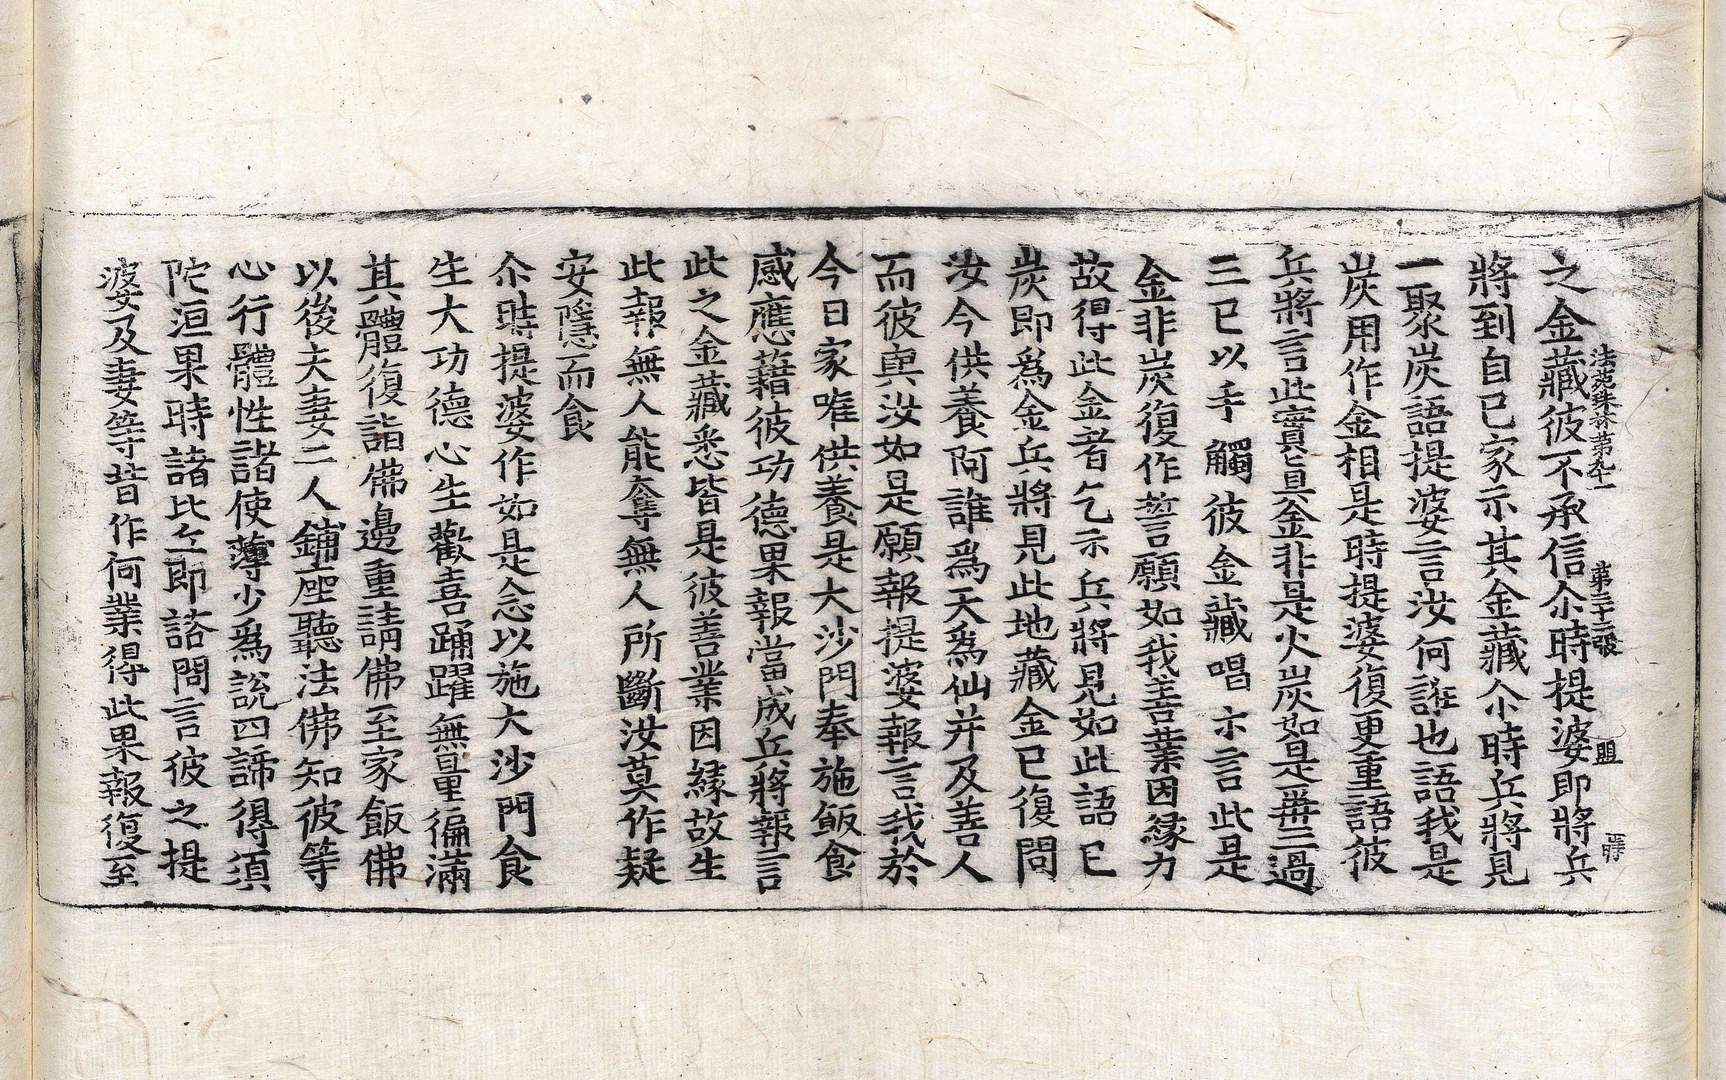 法苑珠林第九十一　第三十二張
之金藏彼不承信尒時提婆即將兵
將到自己家示其金藏尒時兵將見
一聚炭語提婆言汝何誑也語我是
炭用作金相是時提婆復更重語彼
兵將言此實是真金非是火炭如是再三過
三已以手觸彼金藏唱亦言此是
金非炭復作誓言願如我善業因緣力
故得此金者乞示兵將見如此語已
炭即為金兵將見此地藏金已復問
汝今供養阿誰為天為仙并及善人
而彼與汝如是願報提婆報言我於
今日家唯供養是大沙門奉施飯食
感應藉彼功德果報當成兵將報言
此之金藏悉皆是彼善業因緣故生
此報無人能奪無人所斷汝莫作疑
安隱而食
尒時提婆作如是念以施大沙門食
生大功德心生歡喜踊躍無量徧滿
其體復詣佛邊重請佛至家飯佛
以後夫妻二人鋪座聽法佛知彼等
心行體性諸使薄少為說四諦得須
陀洹果時諸比丘即諮問言彼之提
婆及妻等昔作何業得此果報復至